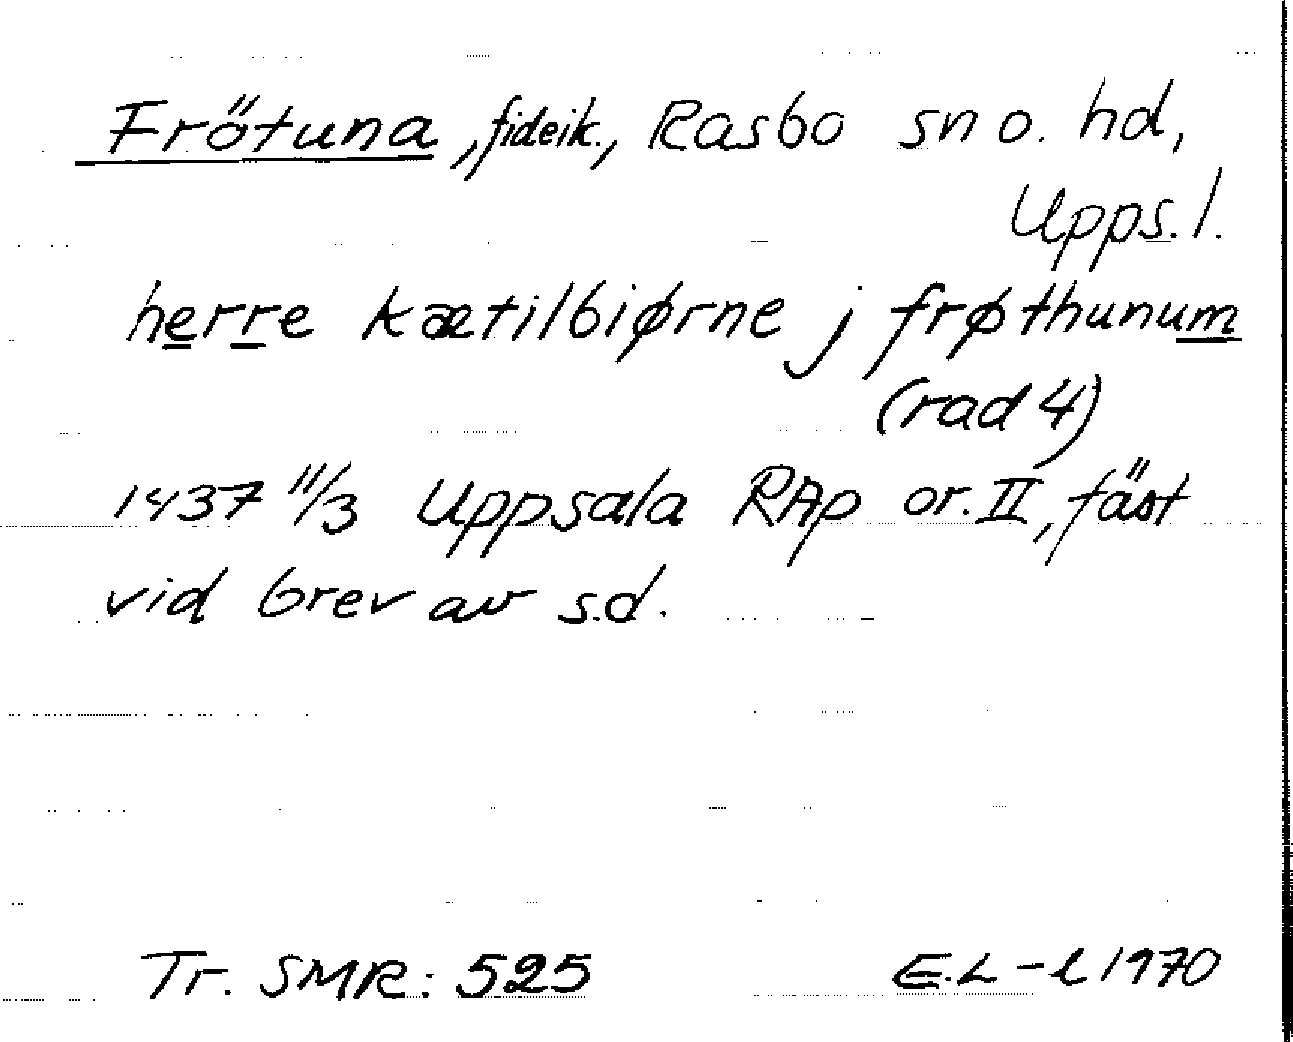 Frötuna, fideik., Rasbo sn o. hd,
Upps. l.
herre kætilbiørne j frøthunum
(rad 4)
1437 11/3 Uppsala RAp or. II, fäst
vid brev av s.d.
Tr. SMR: 525 E.L-l 1970